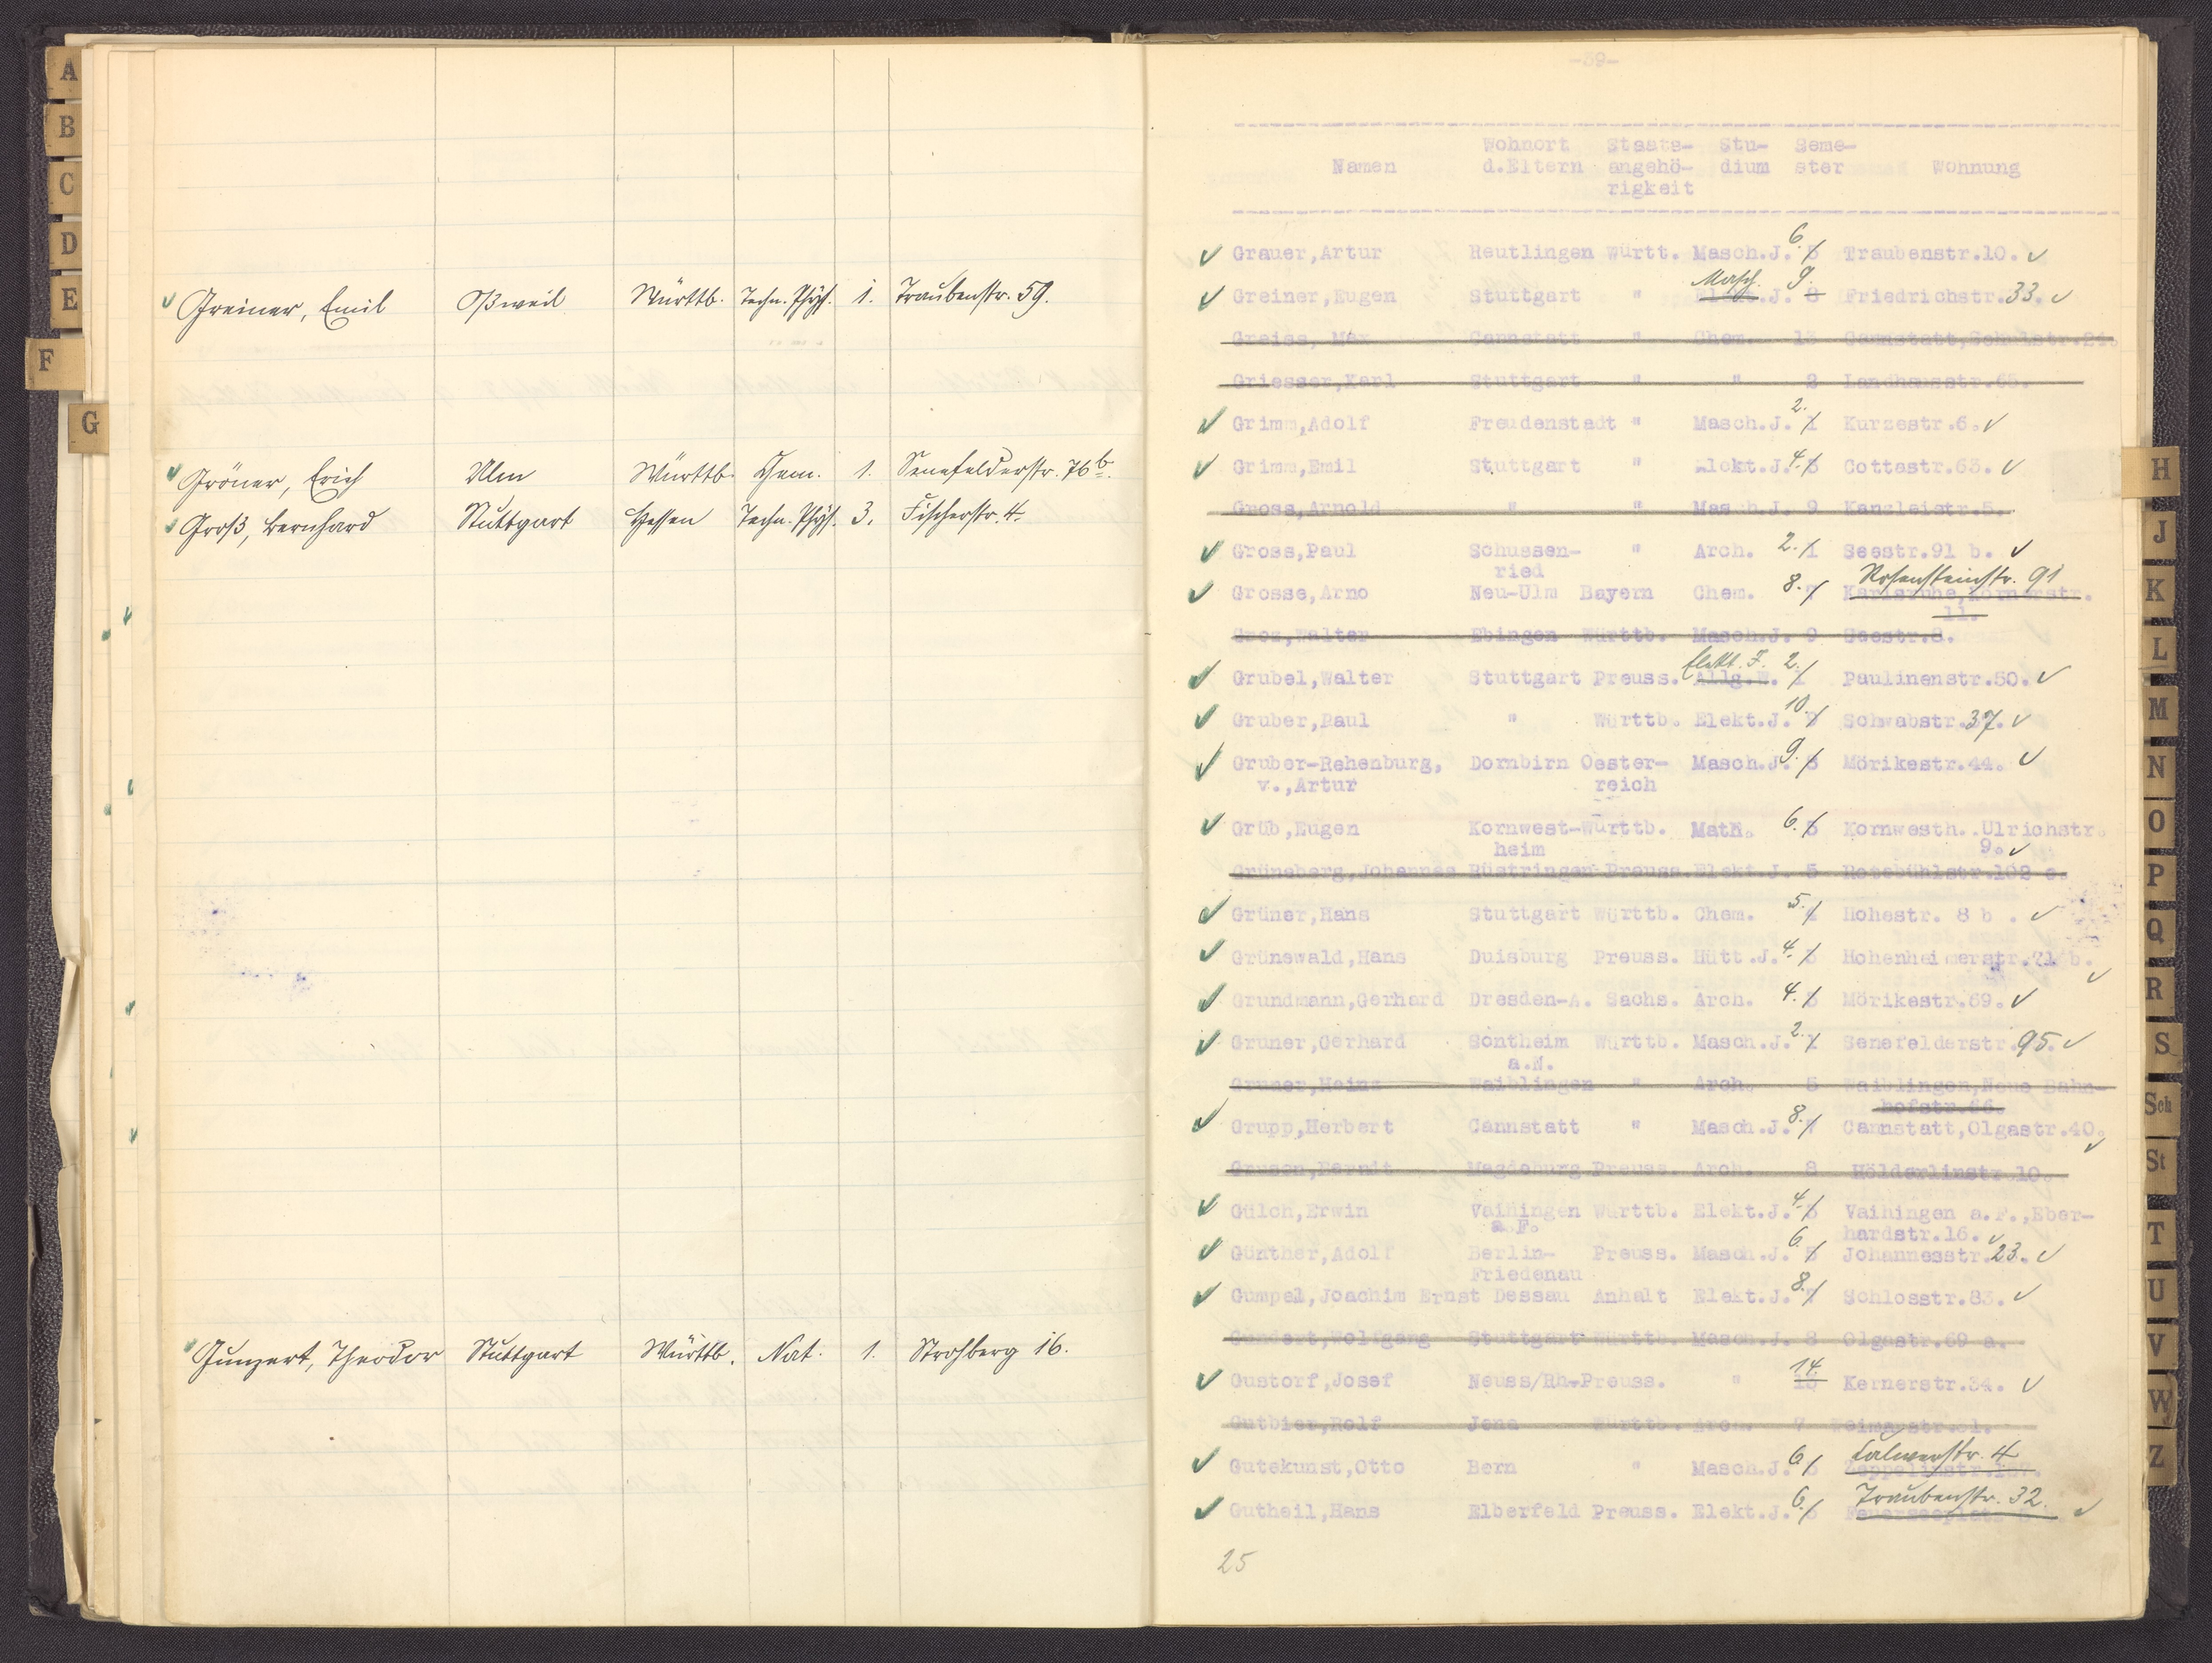 A
B
C
D
E
F
G
Greiner, Emil Oßweil Württb. Techn. Phys. 1. Traubenstr. 59.
Gröner, Erich Ulm Württb. Chem. 1. Senefelderstr. 76 b.
Groß, Bernhard Stuttgart Hessen Techn. Phys. 3. Fischerstr. 4.
Gunzert, Theodor Stuttgart Württb. Nat. 1. Strohberg 16.
-39-
Wohnort Staats- Stu- Seme-
Namen d.Eltern angehö- dium ster Wohnung
rigkeit
Grauer,Artur Reutlingen Württ. Masch.J. 6. 5 Traubenstr.10.
Masch. 9.
Greiner,Eugen Stuttgart " J. 8 Friedrichstr.33.
Greiss, Max Cannstatt " Chem. 13 Cannstatt,Schulstr.24.
Griesser,Karl Stuttgart " " 2 Landhausstr.65.
Grimm,Adolf Freudenstadt " Masch.J. 2. 1 Kurzestr.6.
Grimm,Emil Stuttgart " Elekt.J. 4. 3 Cottastr.63.
Gross,Arnold " " Masch.J. 9 Kanzleistr.5.
Gross,Paul Schussen- " Arch. 2. 1 Seestr.91 b.
ried
Rosensteinstr. 91
Grosse,Arno Neu-Ulm Bayern Chem. 8. 7 Karlsruhe,Körnerstr.
11.
Groz,Walter Ebingen Württb. Masch.J. 9 Seestr.8.
Elekt. J. 2.
Grubel,Walter Stuttgart Preuss. Allg.W. 1 Paulinenstr.50.
10.
Gruber,Paul " Württb. Elekt.J. Schwabstr.37.
Gruber-Rehenburg, Dornbirn Oester- Masch.J. 9. 8 Mörikestr.44.
v.,Artur reich
Grüb,Eugen Kornwest- Württb. Math. 6. 5 Kornwesth. Ulrichstr.
heim 9.
Grüneberg,Johannes Rüstringen Preuss. Elekt.J. 5 Rotebühlstr.102 c.
Grüner,Hans Stuttgart Württb. Chem. 5. 4 Hohestr. 8 b .
Grünewald,Hans Duisburg Preuss. Hütt.J. 4. 3 Hohenheimerstr.71 b.
Grundmann,Gerhard Dresden-A. Sachs. Arch. 4. 3 Mörikestr.69.
Gruner,Gerhard Sontheim Württb. Masch.J. 2. 1 Senefelderstr.95.
a.N.
Gruner,Heinz Waiblingen " Arch. 5 Waiblingen,Neue Bahn-
hofstr.26.
Grupp,Herbert Cannstatt " Masch.J. 8. 7 Cannstatt,Olgastr.40.
Gruson,Berndt Magdeburg Preuss. Arch. 8 Hölderlinstr.10.
Gülch,Erwin Vaihingen Württb. Elekt.J. 4. 3 Vaihingen a.F.,Eber-
a.F. hardstr.16.
Günther,Adolf Berlin- Preuss. Masch.J. 6. 5 Johannesstr.23.
Friedenau
Gumpel,Joachim Ernst Dessau Anhalt Elekt.J. 8. 7 Schlosstr.83.
Gundert,Wolfgang Stuttgart Württb. Masch.J. 8 Olgastr.69 a.
14.
Gustorf,Josef Neuss/Rh. Preuss. " 13 Kernerstr.34.
Gutbier,Rolf Jena Württb. Arch. 7 Weimarstr.
Calwerstr. 4
Gutekunst,Otto Bern " Masch.J. 6. 5 Zeppelinstr.
Traubenstr. 32.
Gutheil,Hans Elberfeld Preuss. Elekt.J. 6. 5 Feuerseeplatz
25
H
J
K
L
M
N
O
P
Q
R
S
Sch
St
T
U
V
W
Z